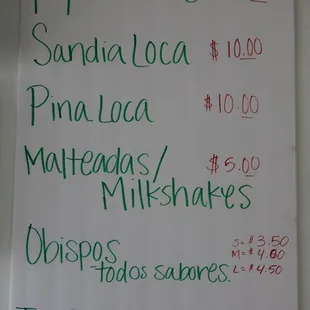 Sandia Loca $10.00
Pina Loca $10.00
Malteadas/ $5.00
Milkshakes
Obispos S=$3.50
-todos sabores. M=$4.00
L=$4.50